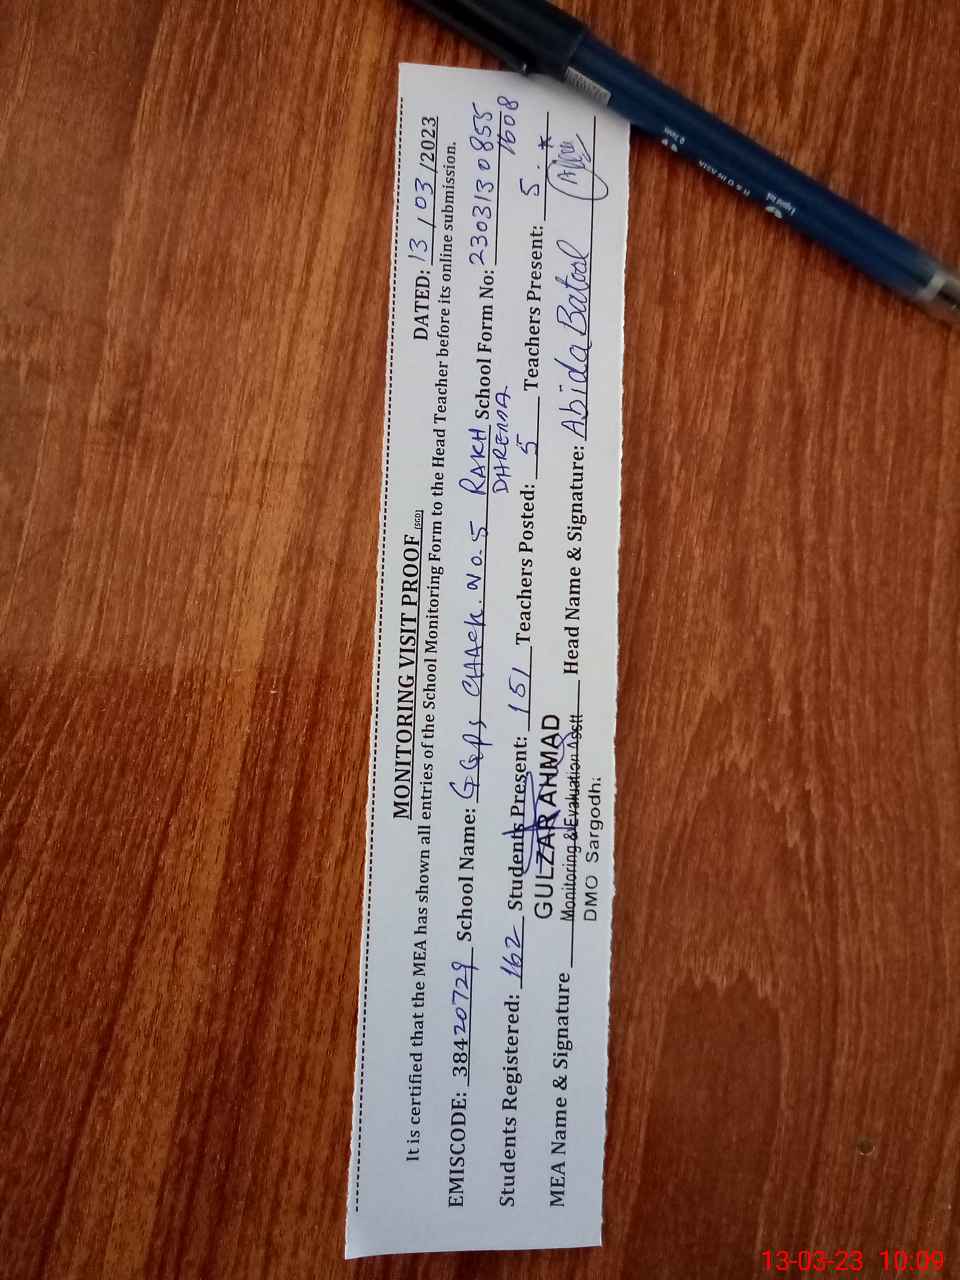 MONITORING VISIT PROOF (SCD) DATED: 13/03/2023
It is certified that the MEA has shown all entries of the School Monitoring Form to the Head Teacher before its online submission.
EMISCODE: 38420729 School Name: GGPS CHACK.NO.5 RAKH School Form No: 2303130855
DAREMA 1608
Students Registered: 162 Students Present: 151 Teachers Posted: 5 Teachers Present: 5
GULZAR AHMAD
MEA Name & Signature Monitoring & Evaluation Asstt Head Name & Signature: Abida Batool
DMO Sargodha
Liquid Ink
13-03-23 10:09